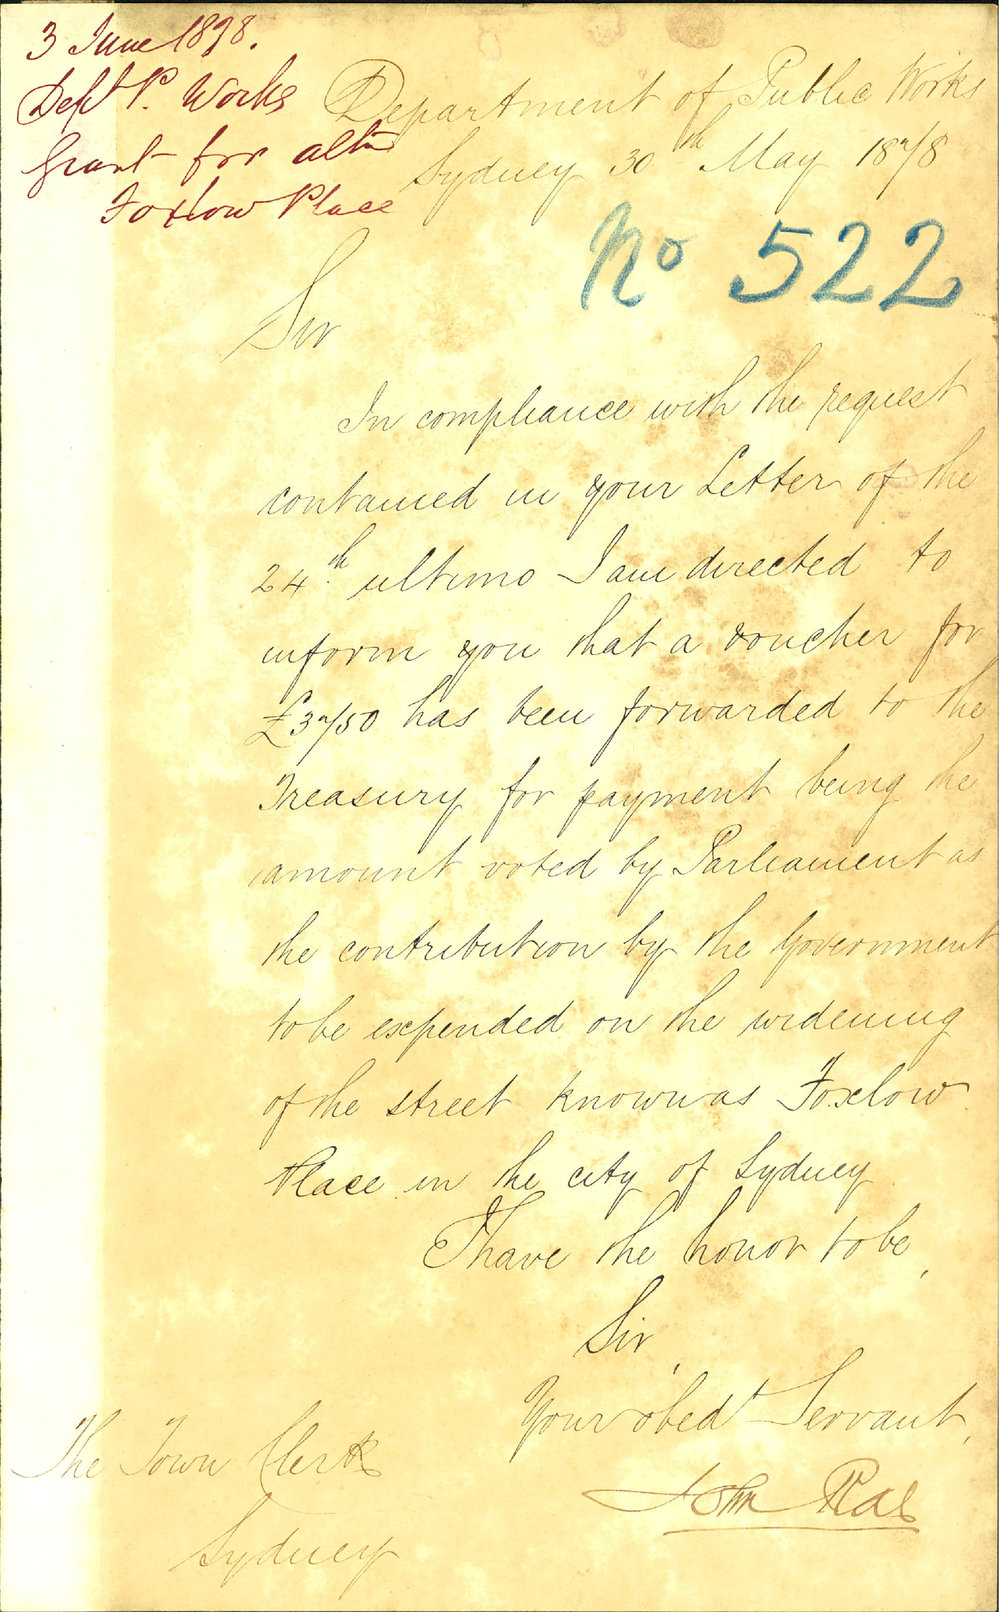 3 June 1878.
Dept P. Works
Grant for altn
Foxlow Place
Department of Public Works
Sydney 30th May 1878
No 522
Sir
In compliance with the request
contained in your Letter of the
24th ultimo I am directed to
inform you that a voucher for
£3750 has been forwarded to the
Treasury for payment being the
amount voted by Parliament as
the contribution by the Government
to be expended on the widening
of the street known as Foxlow
Place in the city of Sydney
I have the honor to be,
Sir,
Your obedt Servant,
John Rae
The Town Clerk
Sydney